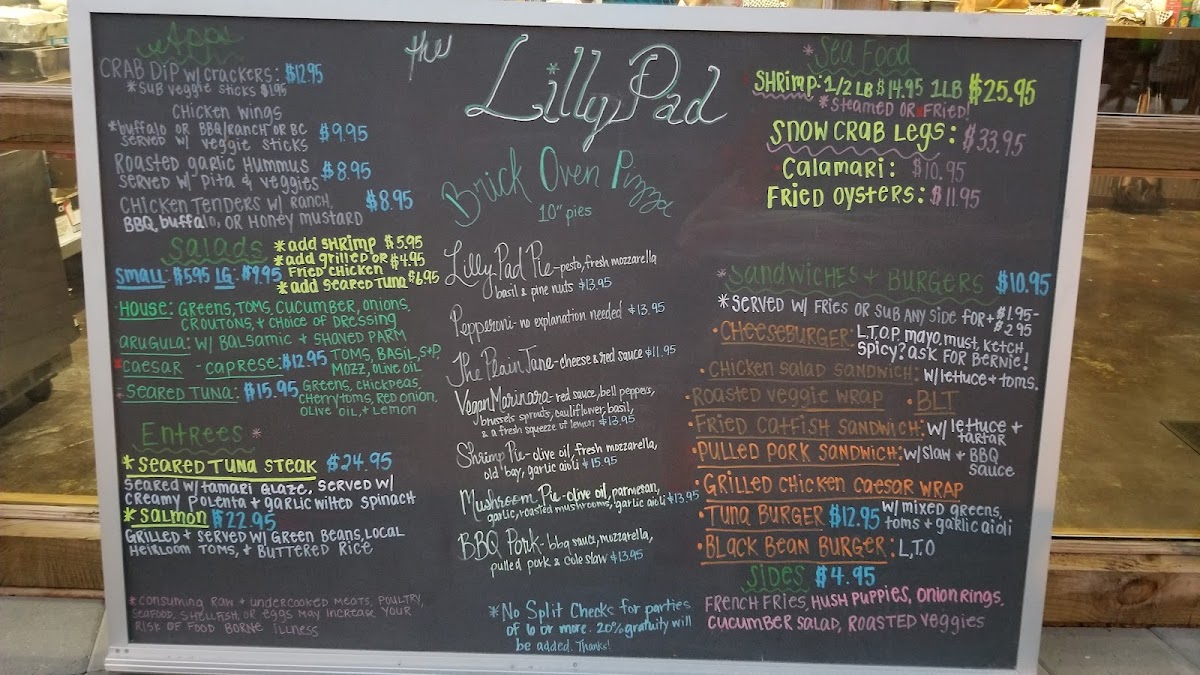 Apps
CRAB DiP w/ CRACKERS: $12.95
*SUB veggie sticks $1.95
Chicken wings
*buffalo OR BBQ/RANCH OR BC
served w/ veggie sticks $9.95
Roasted garlic Hummus
served w/ pita & veggies $8.95
CHicken Tenders w/ Ranch,
BBQ, buffalo, OR HONEY MUSTARD $8.95
Salads
*add SHRimp $5.95
*add grilled OR
Fried chicken $4.95
*add seared Tuna $6.95
Small: $5.95 LG: $9.95
House: Greens, Toms, Cucumber, Onions,
Croutons, + Choice of Dressing
arugula: w/ Balsamic + Shaved Parm
*caesar - caprese: $12.95 Toms, Basil, S+P,
Mozz, Olive Oil
-Seared Tuna: $15.95 Greens, Chickpeas,
Cherrytoms, Red onion,
Olive oil, + Lemon
Entrees *
*Seared Tuna Steak $24.95
Seared w/ Tamari Glaze, Served w/
Creamy Polenta + Garlic Wilted Spinach
*Salmon $22.95
Grilled + Served w/ Green Beans, Local
Heirloom Toms, & Buttered Rice
*Consuming raw + undercooked meats, poultry,
seafood, shellfish or eggs may increase your
risk of food borne illness
the Lilly Pad
Brick Oven Pizza
10" pies
Lilly Pad Pie - pesto, fresh mozzarella
basil & pine nuts $13.95
Pepperoni - no explanation needed $13.95
The Plain Jane - cheese & red sauce $11.95
Vegan Marinara - red sauce, bell peppers,
brussels sprouts, cauliflower, basil,
& a fresh squeeze of lemon $13.95
Shrimp Pie - olive oil, fresh mozzarella,
old bay, garlic aioli $15.95
Mushroom Pie - olive oil, parmesan,
garlic, roasted mushrooms, garlic aioli $13.95
BBQ Pork - bbq sauce, mozzarella,
pulled pork & cole slaw $13.95
*No Split Checks for parties
of 6 or more. 20% gratuity will
be added. Thanks!
*Sea Food
SHRimp: 1/2 LB $14.95 1LB $25.95
*Steamed OR Fried!
Snow Crab Legs: $33.95
Calamari: $10.95
Fried Oysters: $11.95
*Sandwiches + Burgers $10.95
*Served w/ Fries or sub any side for + $1.95-
$2.95
•Cheeseburger: L.T.O.P. mayo, must, ketch
Spicy? ask for Bernie!
•Chicken Salad Sandwich: w/ lettuce + toms.
•Roasted Veggie Wrap •BLT
•Fried Catfish Sandwich: w/ lettuce +
tartar
•Pulled Pork Sandwich: w/ slaw + BBQ
sauce
•Grilled Chicken Caesar Wrap
•Tuna Burger $12.95 w/ mixed greens,
toms + garlic aioli
•Black Bean Burger: L,T,O
Sides $4.95
French Fries, Hush Puppies, Onion Rings,
Cucumber Salad, Roasted Veggies